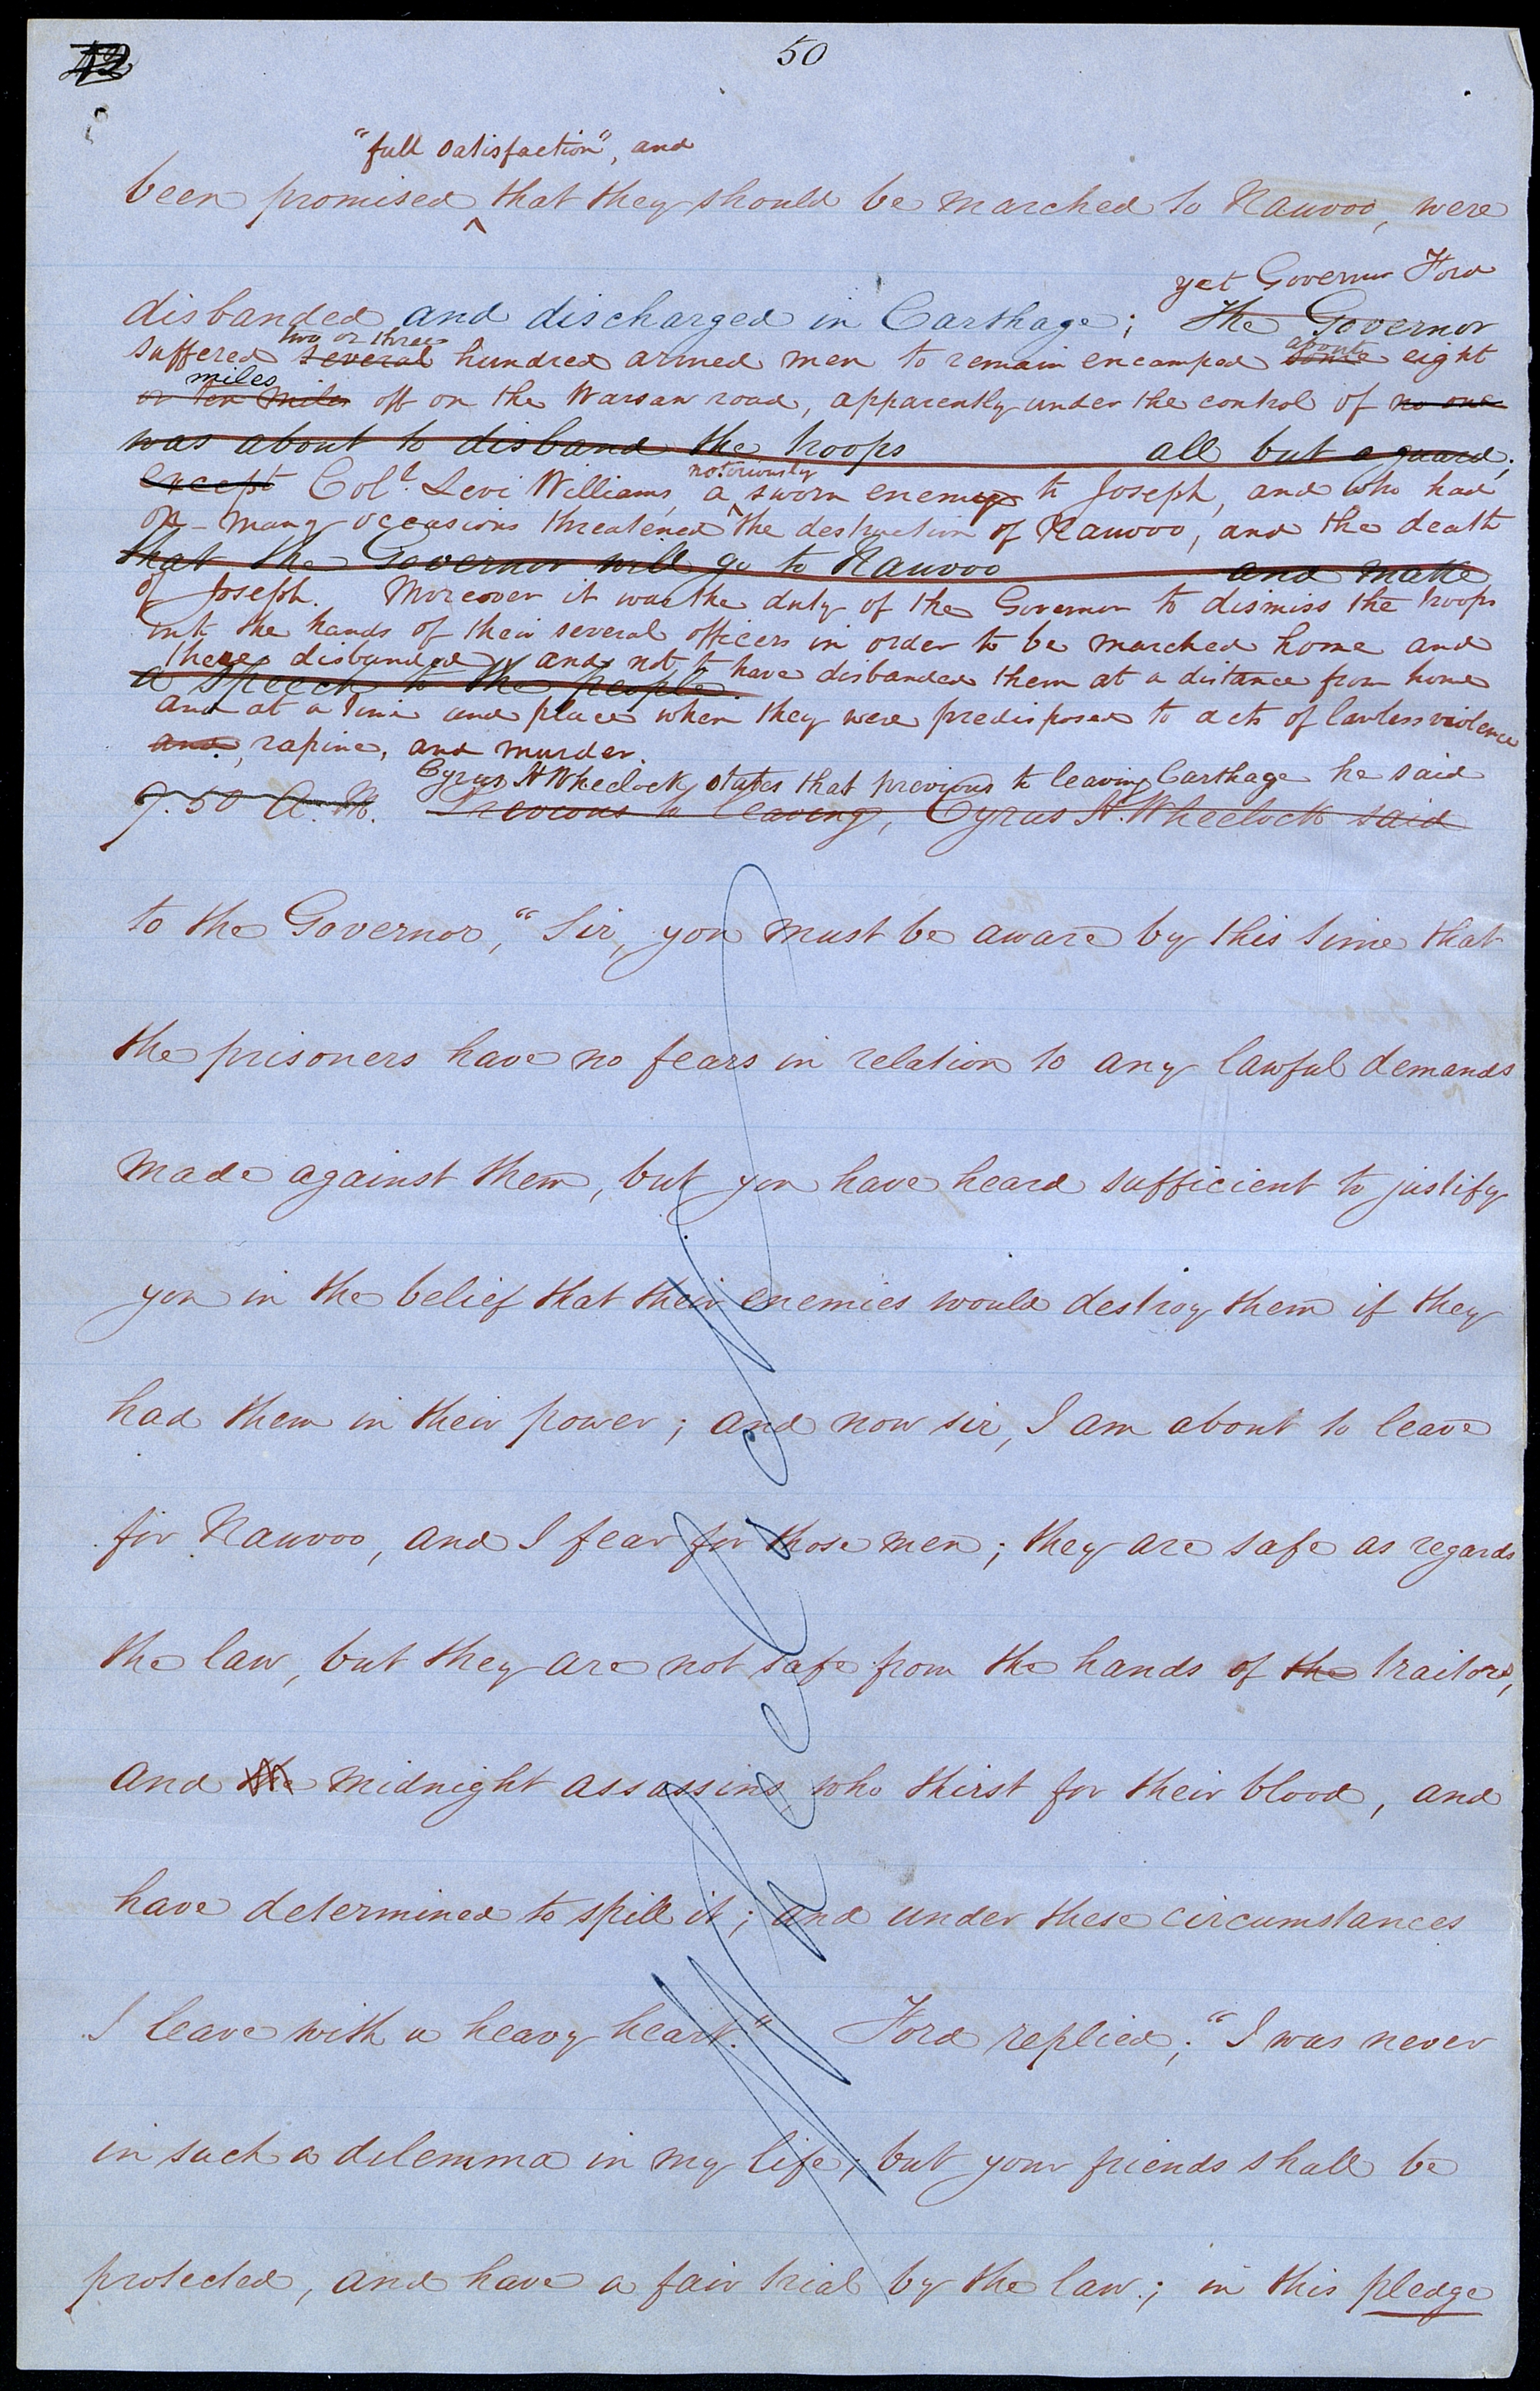 50
"full satisfaction", and
been promised ^ that they should be marched to Nauvoo, were
yet Governor Ford
disbanded and discharged in Carthage; The Governor
two or three about
suffered several hundred armed men to remain encamped some eight
miles
or ten miles off on the Warsaw road, apparently under the control of no one
was about to disband the troops all but a guard;
notoriously
except Col. Levi Williams, a ^ sworn enemy to Joseph, and who had
on many occasions threatened the destruction of Nauvoo, and the death
that the Governor will go to Nauvoo and make
of Joseph. Moreover it was the duty of the Governor to dismiss the troops
into the hands of their several officers in order to be marched home and
there disbanded, and not to have disbanded them at a distance from home
a speech to the people.
and at a time and place when they were predisposed to acts of lawless violence
and, rapine, and murder.
Cyrus H Wheelock states that previous to leaving Carthage he said
9.50 A.M. Previous to leaving, Cyrus H. Wheelock said
to the Governor, "Sir, you must be aware by this time that
the prisoners have no fears in relation to any lawful demands
made against them, but you have heard sufficient to justify
you in the belief that their enemies would destroy them if they
had them in their power; and now sir, I am about to leave
for Nauvoo, and I fear for those men; they are safe as regards
the law, but they are not safe from the hands of the traitors,
and the midnight assassins who thirst for their blood, and
have determined to spill it; and under these circumstances
I leave with a heavy heart." Ford replied; "I was never
in such a dilemma in my life; but your friends shall be
protected, and have a fair trial by the law.; in this pledge
Wheelock